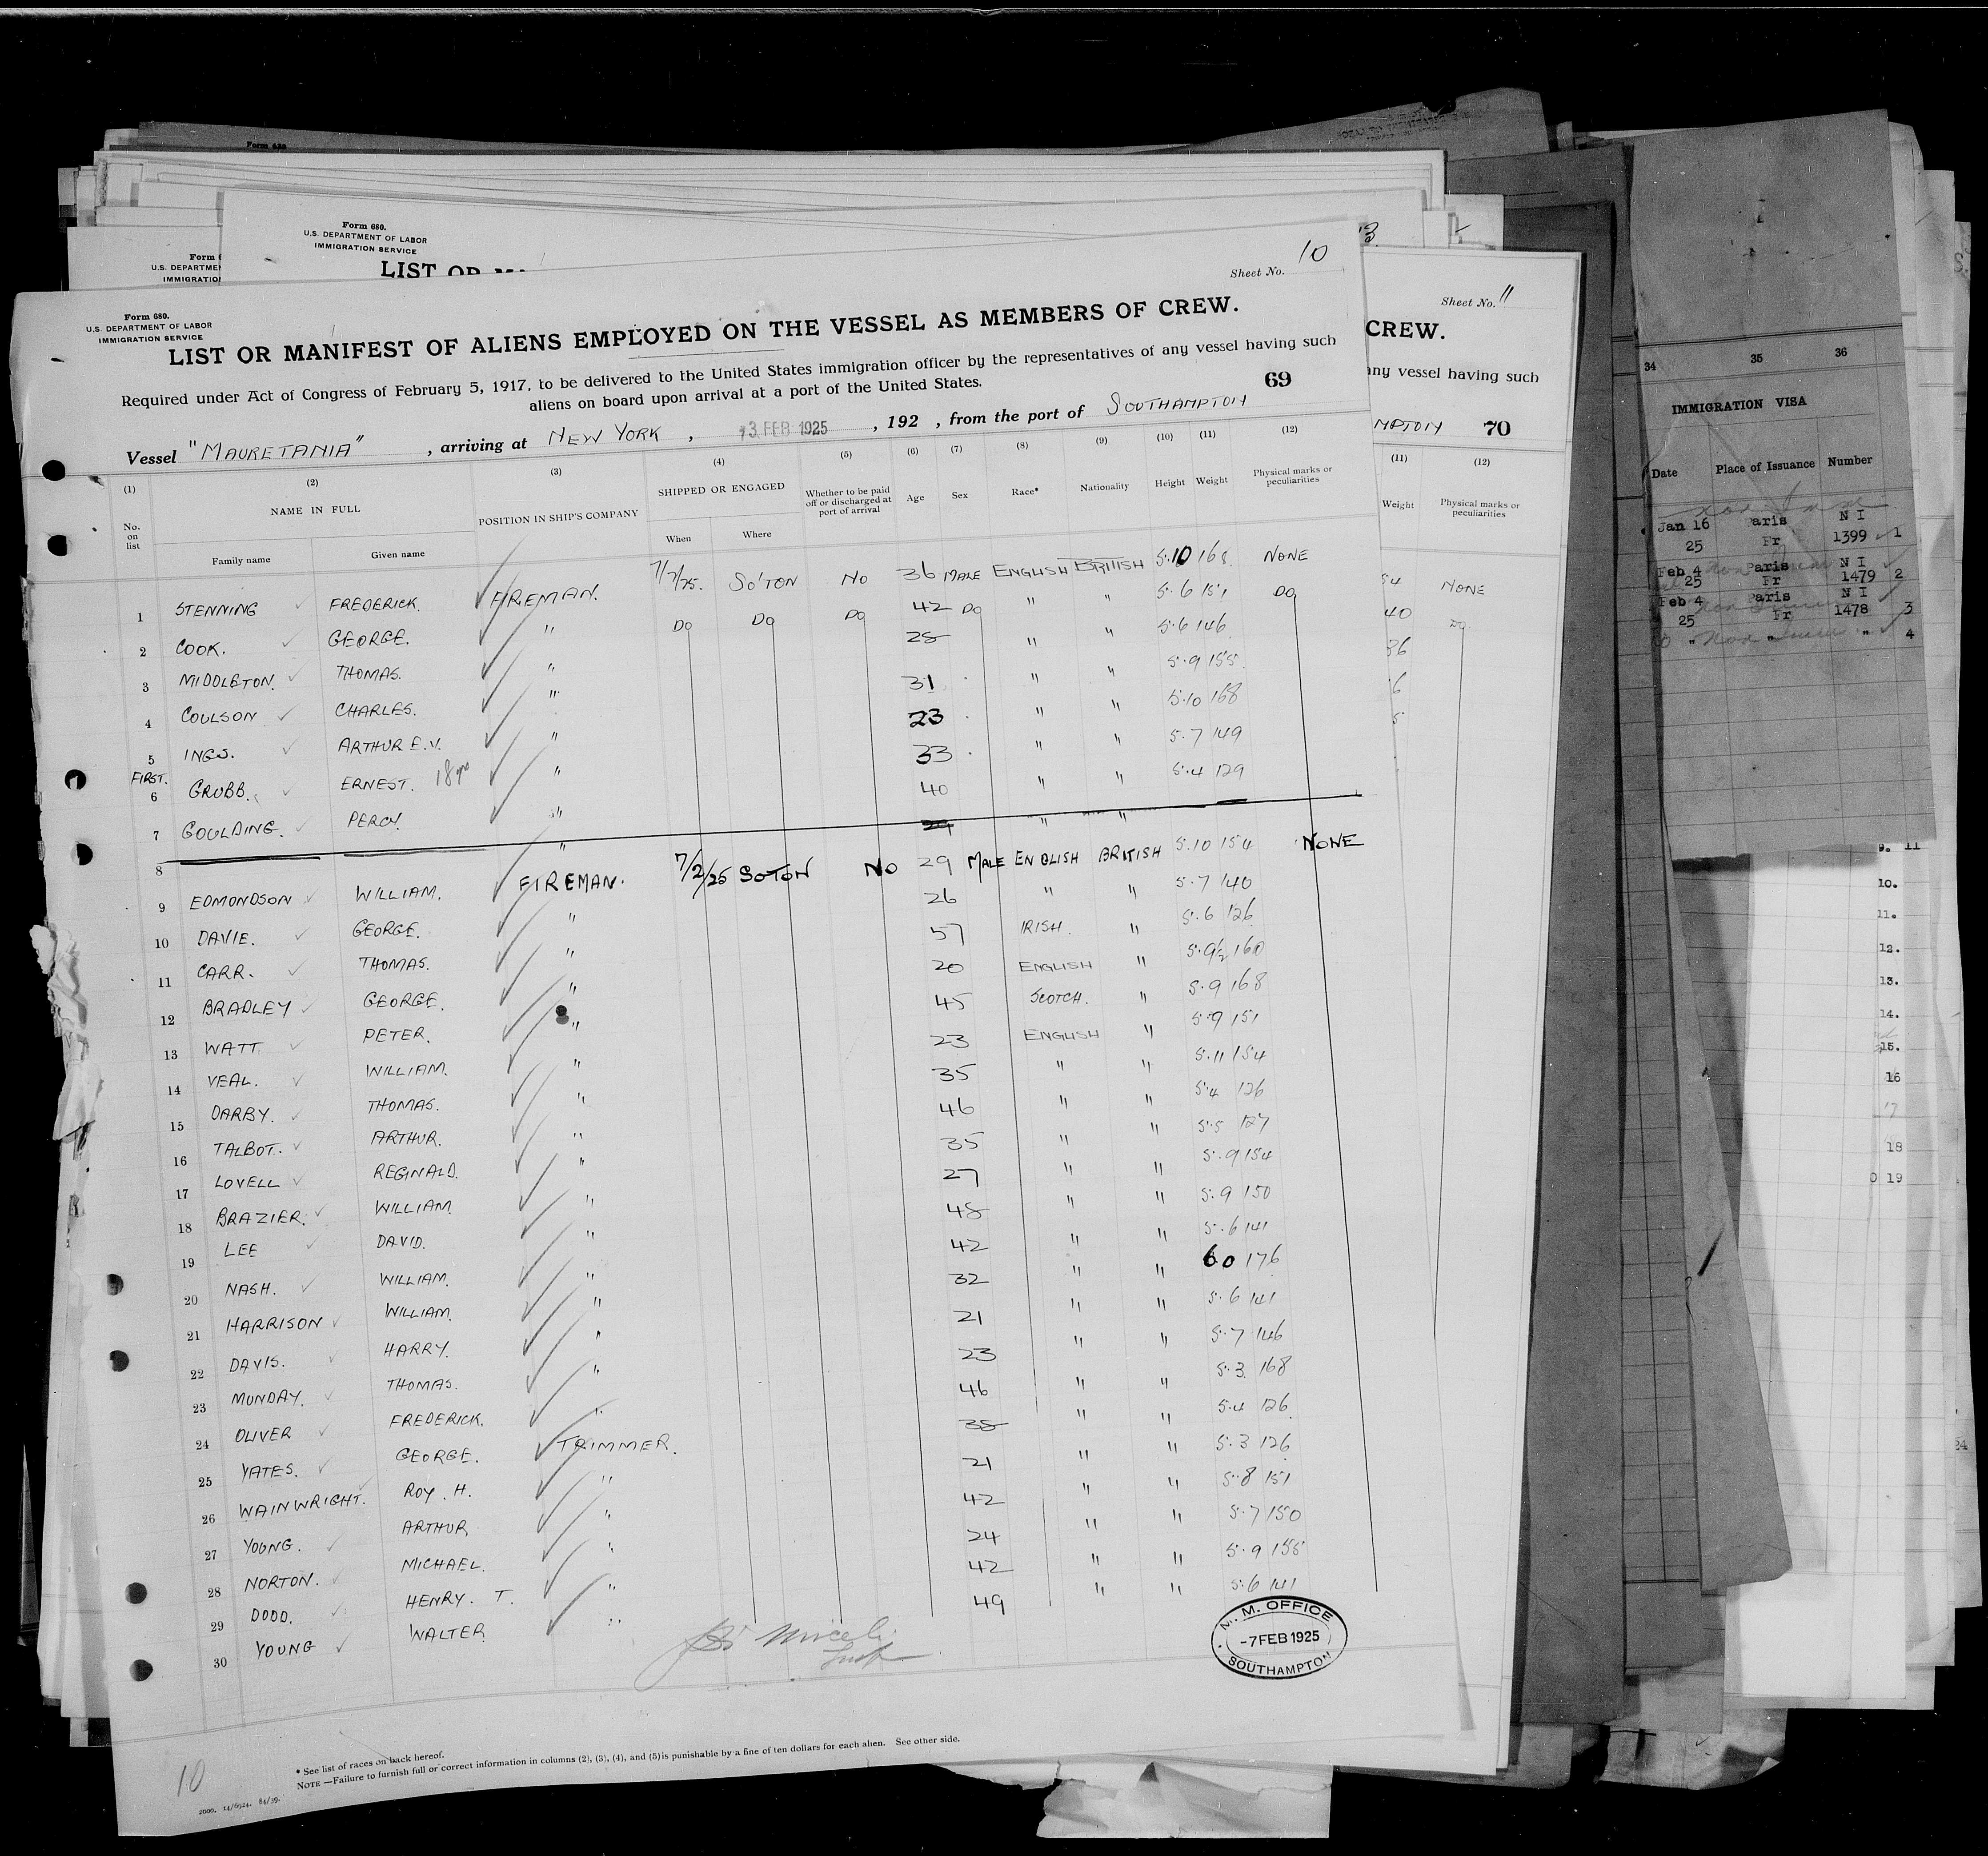 Form 680.
U.S. DEPARTMENT OF LABOR
IMMIGRATION SERVICE
Sheet No. 10
LIST OR MANIFEST OF ALIENS EMPLOYED ON THE VESSEL AS MEMBERS OF CREW.
Required under Act of Congress of February 5, 1917, to be delivered to the United States immigration officer by the representatives of any vessel having such
aliens on board upon arrival at a port of the United States.
69
Vessel "MAURETANIA", arriving at NEW YORK, 13 FEB 1925, 192 , from the port of SOUTHAMPTON
(1) (2) (3) (4) (5) (6) (7) (8) (9) (10) (11) (12)
No. on list NAME IN FULL POSITION IN SHIP'S COMPANY SHIPPED OR ENGAGED Whether to be paid off or discharged at port of arrival Age Sex Race* Nationality Height Weight Physical marks or peculiarities
Family name Given name When Where
1 STENNING FREDERICK. FIREMAN. 7/2/25. SO'TON NO 36 MALE ENGLISH BRITISH 5.10 168 NONE
2 COOK. GEORGE. " DO DO DO 42 DO " " 5.6 151 DO
3 MIDDLETON. THOMAS. " 28 " " 5.6 146
4 COULSON CHARLES. " 31 " " 5.9 155
5 INGS. ARTHUR E.V. " 23 " " 5.10 168
FIRST.
6 GRUBB. ERNEST. 18 yrs " 33 " " 5.7 149
7 GOULDING. PERCY. " 40 " " 5.4 129
8 " 29 " "
9 EDMONDSON WILLIAM. FIREMAN. 7/2/25 SOTON NO 29 MALE ENGLISH BRITISH 5.10 154 NONE
10 DAVIE. GEORGE. " 26 " " 5.7 140
11 CARR. THOMAS. " 57 IRISH. " 5.6 126
12 BRADLEY GEORGE. " 20 ENGLISH " 5.9½ 160
13 WATT PETER. " 45 SCOTCH. " 5.9 168
14 VEAL. WILLIAM. " 23 ENGLISH " 5.9 151
15 DARBY. THOMAS. " 35 " " 5.11 154
16 TALBOT. ARTHUR. " 46 " " 5.4 126
17 LOVELL REGINALD. " 35 " " 5.5 127
18 BRAZIER. WILLIAM. " 27 " " 5.9 154
19 LEE DAVID. " 48 " " 5.9 150
20 NASH. WILLIAM. " 42 " " 5.6 141
21 HARRISON WILLIAM. " 32 " " 6.0 176
22 DAVIS. HARRY. " 21 " " 5.6 141
23 MUNDAY. THOMAS. " 23 " " 5.7 146
24 OLIVER FREDERICK. " 46 " " 5.3 168
25 YATES. GEORGE. TRIMMER. 38 " " 5.4 126
26 WAINWRIGHT. ROY. H. " 21 " " 5.3 126
27 YOUNG. ARTHUR " 42 " " 5.8 151
28 NORTON. MICHAEL. " 24 " " 5.7 150
29 DODD. HENRY. T. " 42 " " 5.9 155
30 YOUNG WALTER " 49 " " 5.6 141
M. M. OFFICE
-7 FEB 1925
SOUTHAMPTON
10
* See list of races on back hereof.
NOTE —Failure to furnish full or correct information in columns (2), (3), (4), and (5) is punishable by a fine of ten dollars for each alien. See other side.
2000. 14/6924. 84/39.
Form 680.
U.S. DEPARTMENT OF LABOR
IMMIGRATION SERVICE
LIST OR
Form
U.S. DEPARTMEN
IMMIGRATIO
Form 630
Sheet No. 11
CREW.
any vessel having such
MPTON 70
(11) (12)
Weight Physical marks or peculiarities
54 NONE
40 DO
36
6
5
34 35 36
IMMIGRATION VISA
Date Place of Issuance Number
Jan 16 Paris N I
25 Fr 1399 1
Feb 4 Paris N I
25 Fr 1479 2
Feb 4 Paris N I
25 Fr 1478 3
" " " 4
9. 11
10.
11.
12.
13.
14.
15.
16
17
18
0 19
24